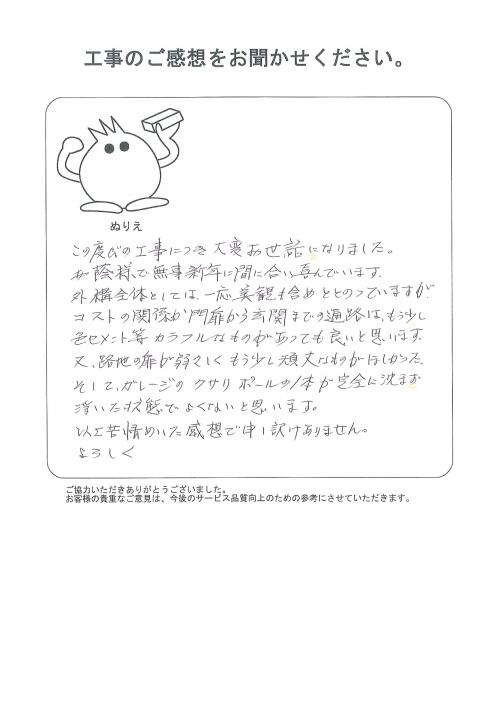 工事のご感想をお聞かせください。
ぬりえ
この度びの工事につき大変お世話になりました。
お陰様で無事新年に間に合い喜んでいます。
外構全体としては、一応美観も含めととのっていますが、
コストの関係か門扉から玄関までの通路は、もう少し
色セメント等カラフルなものがあっても良いと思います。
又、路地の扉が弱々しくもう少し頑丈なものがほしかった。
そして、ガレージのクサリポールの1本が完全に沈まず
浮いた状態でよくないと思います。
以上苦情めいた感想で申し訳けありません。
よろしく
ご協力いただきありがとうございました。
お客様の貴重なご意見は、今後のサービス品質向上のための参考にさせていただきます。